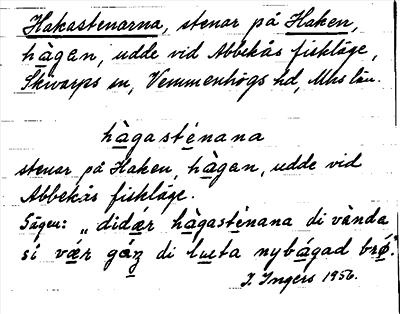 Hakastenarna, stenar på Haken,
hågan, udde vid Abbekås fiskläge,
Skivarps sn, Vemmenhögs hd, Mhs län.
hàgasténana
stenar på Haken, hàgan, udde vid
Abbekås fiskläge.
Sägen: „didær hàgasténana di vànda
si vær gáz di lueta nybágad brø".
I. Ingers 1956.